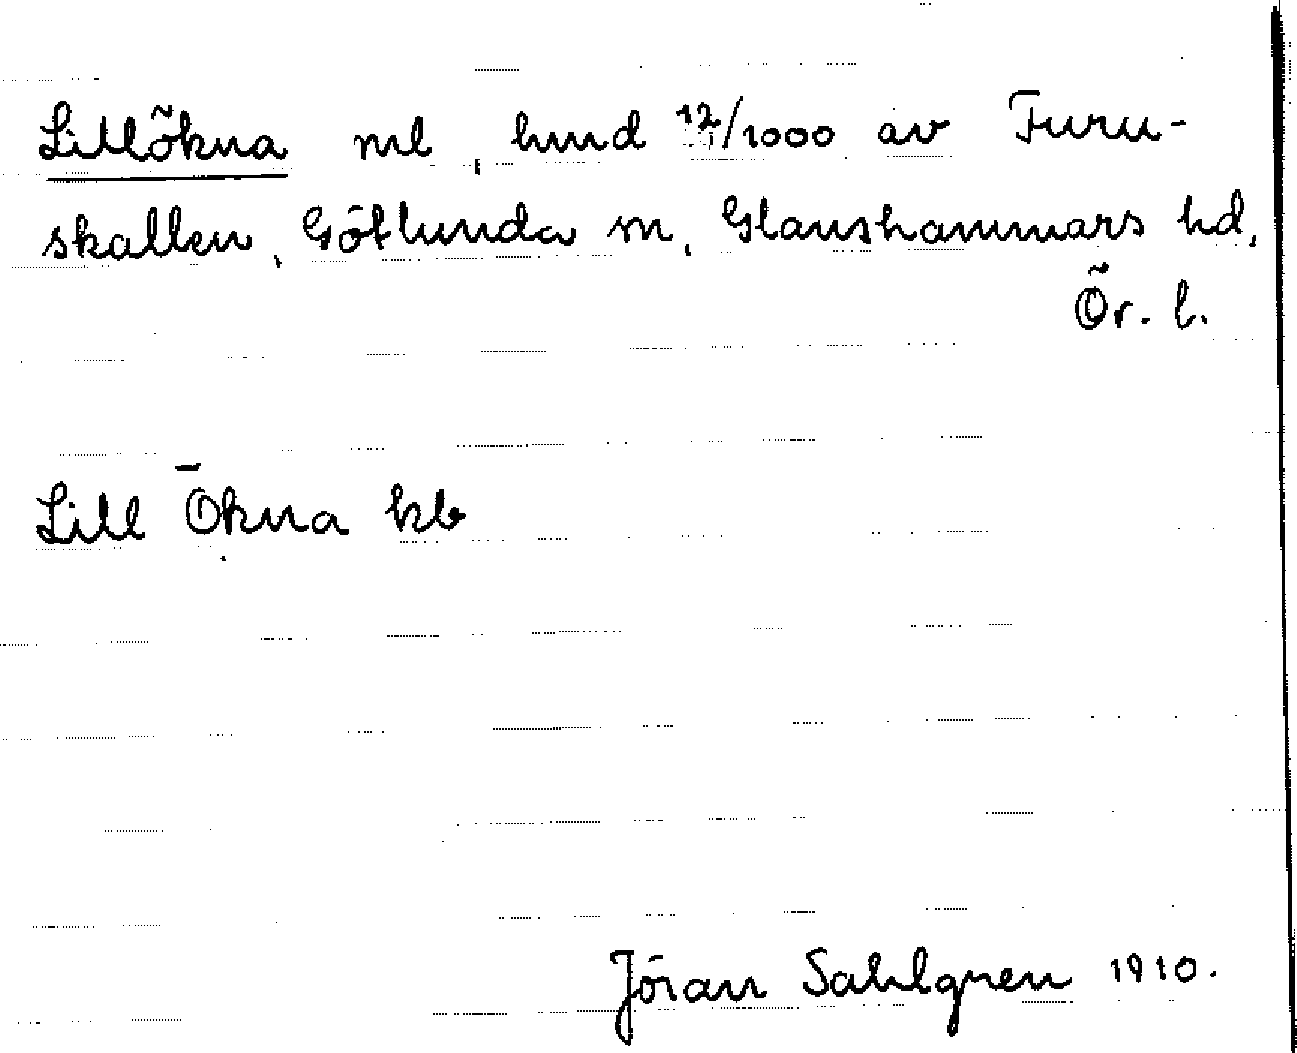 Lillökna ml, hmd 12/1000 av Furu-
skallen, Götlunda sn, Glanshammars hd,
Ör. l.
Lill Ökna kb
Jöran Sahlgren 1910.